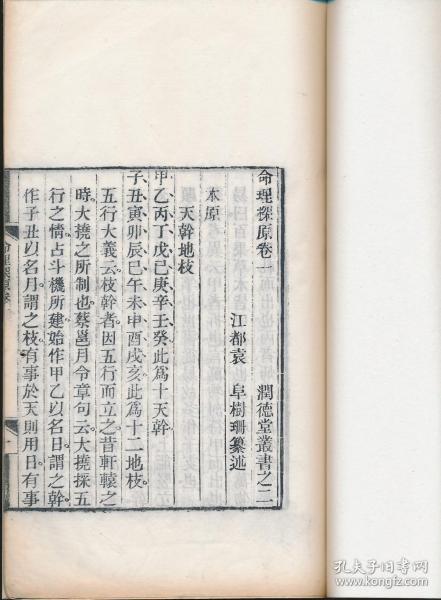 命理探原卷一　潤德堂叢書之二
江都袁　阜樹珊纂述
本原
天幹地枝
甲、乙、丙、丁、戊、己、庚、辛、壬、癸、此爲十天幹
子、丑、寅、卯、辰、巳、午、未、申、酉、戌、亥、此爲十二地枝。
五行大義云。枝幹者。因五行而立之。昔軒轅之
時。大撓之所制也。蔡邕月令章句云。大撓採五
行之情。占斗機所建。始作甲乙以名日。謂之幹
作子丑以名月。謂之枝。有事於天則用日。有事
命理探原卷一
孔夫子旧书网
www.kongfz.com